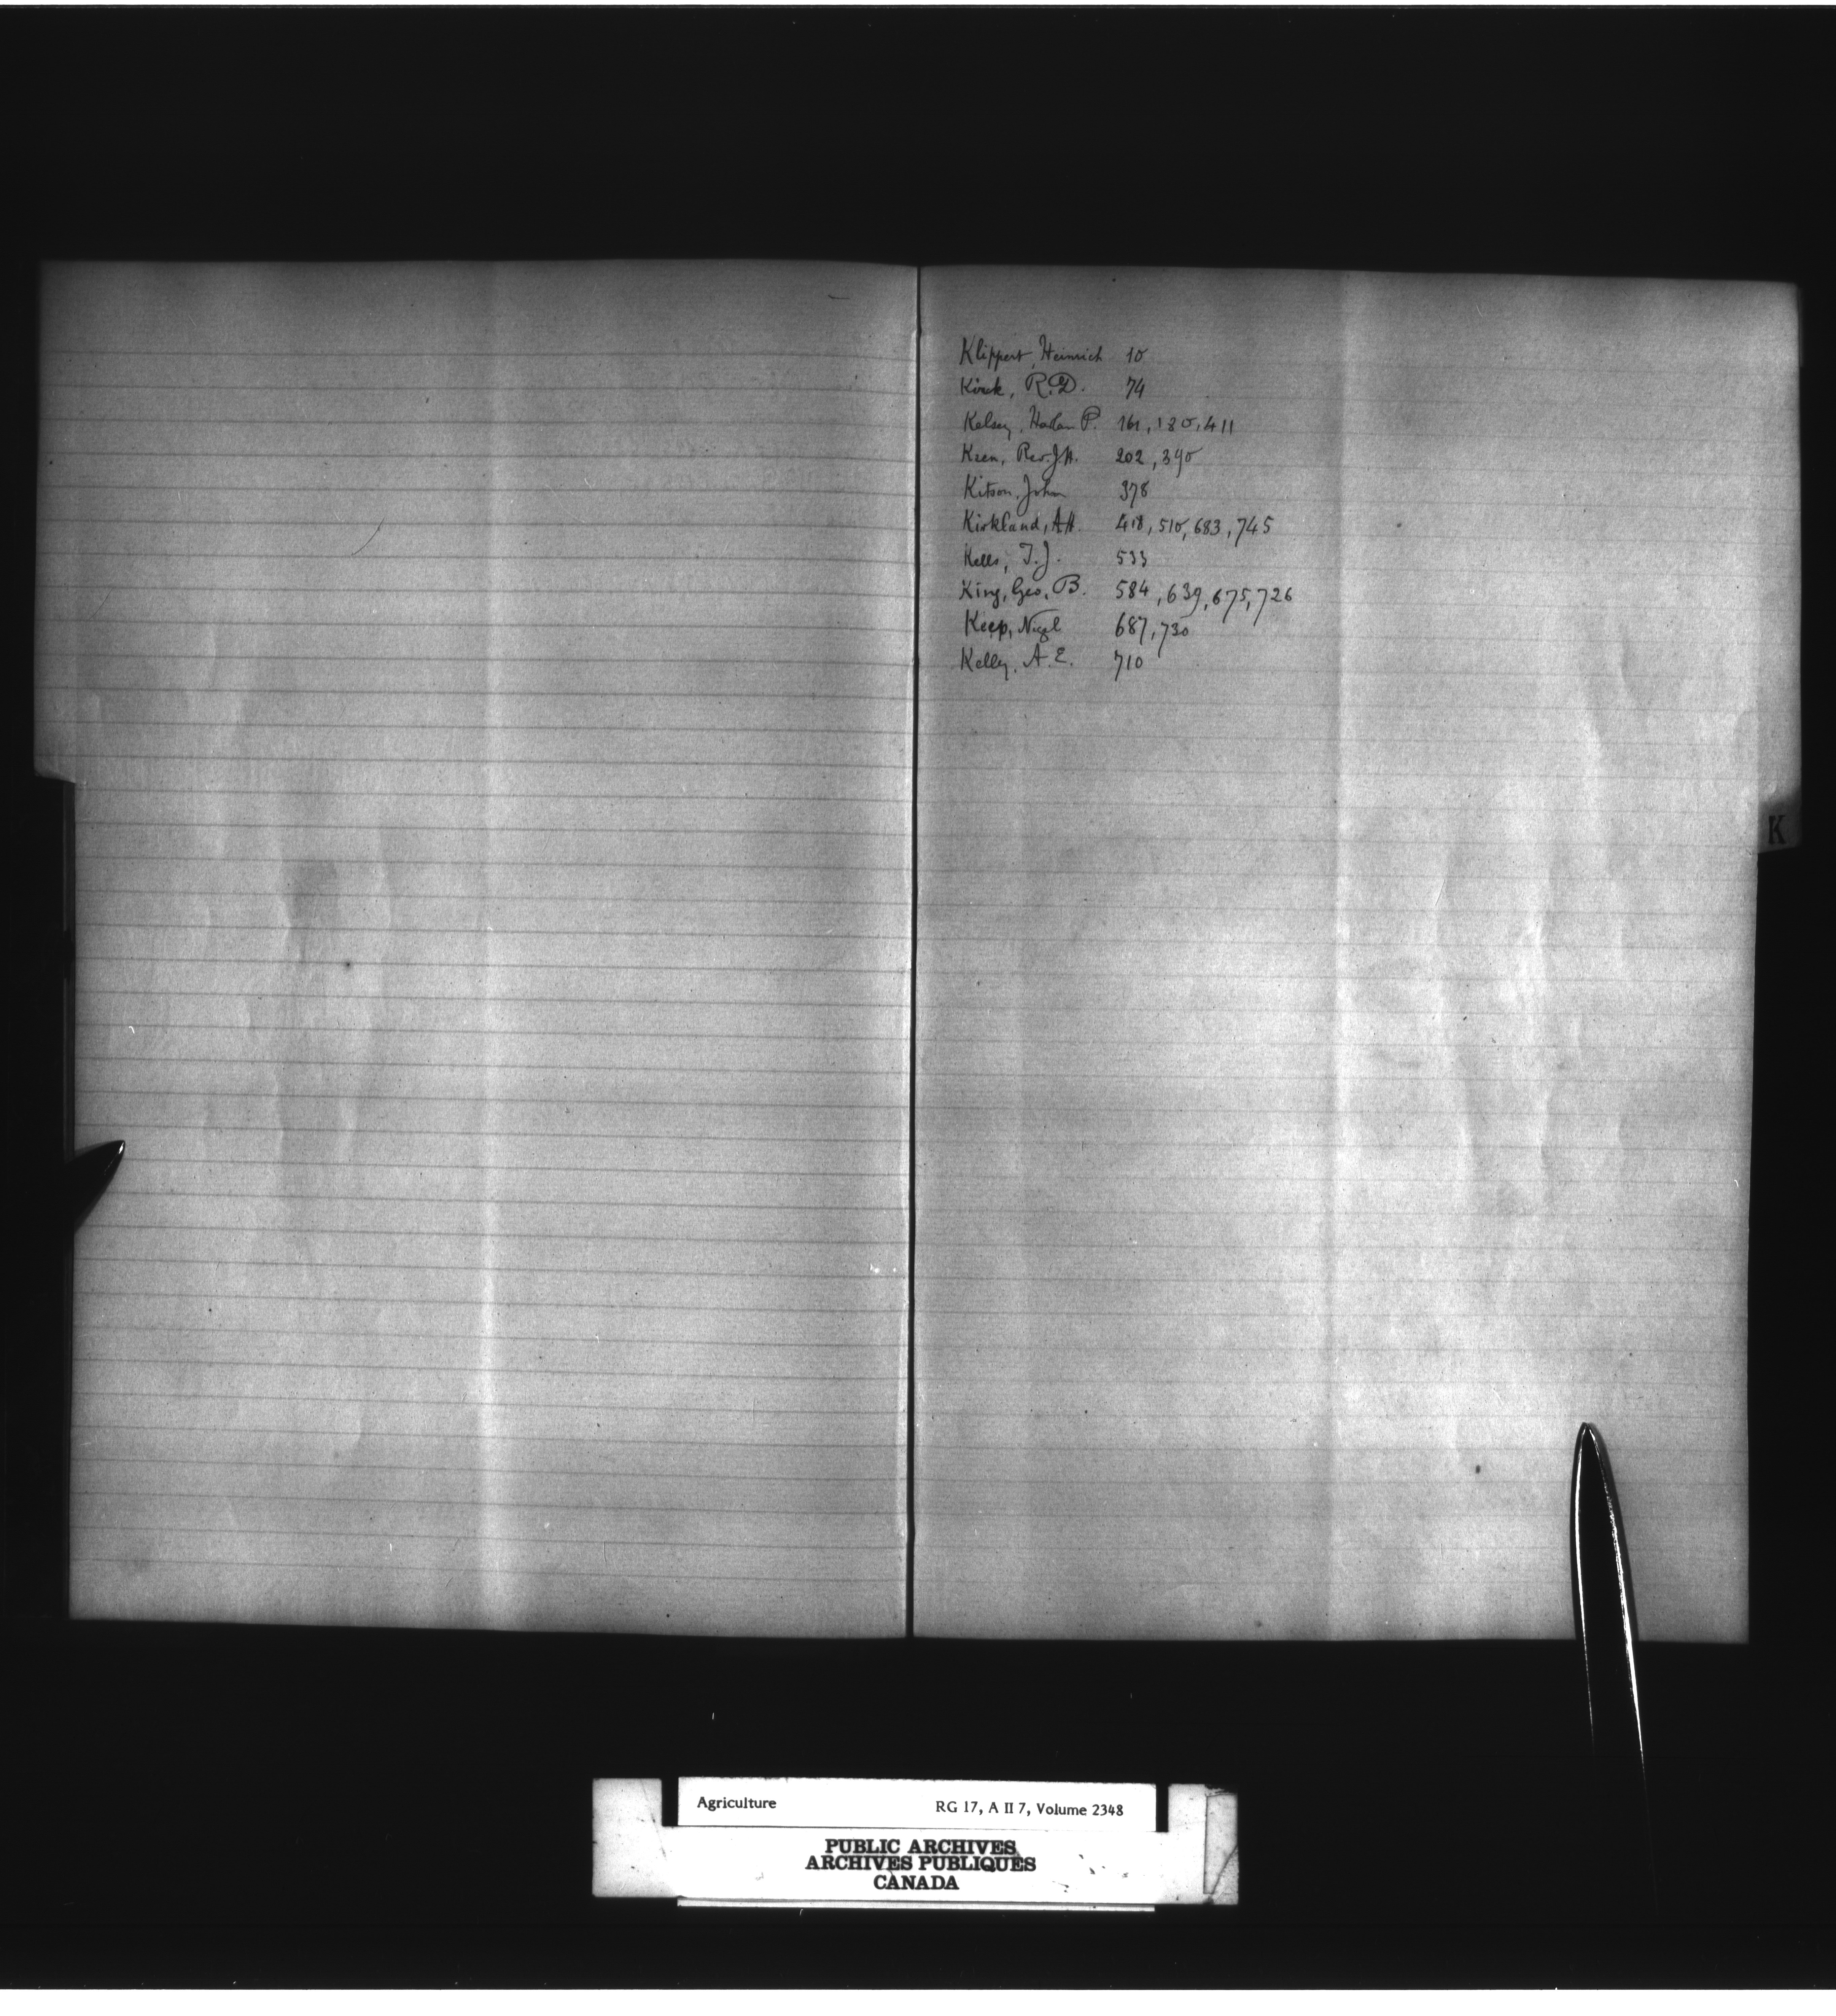 Klippert, Heinrich 10
R.D. 74
Kelsey, Harlan P. 161, 180, 411
Keen, Rev. J.H. 202, 390
Kitson, John 378
Kirkland, A.H. 418, 510, 683, 745
Kells, T.J. 533
King, Geo. B. 584, 639, 675, 726
Keep, Nigel 687, 730
Kelly, A.E. 710
K
Agriculture RG 17, A II 7, Volume 2348
PUBLIC ARCHIVES
ARCHIVES PUBLIQUES
CANADA